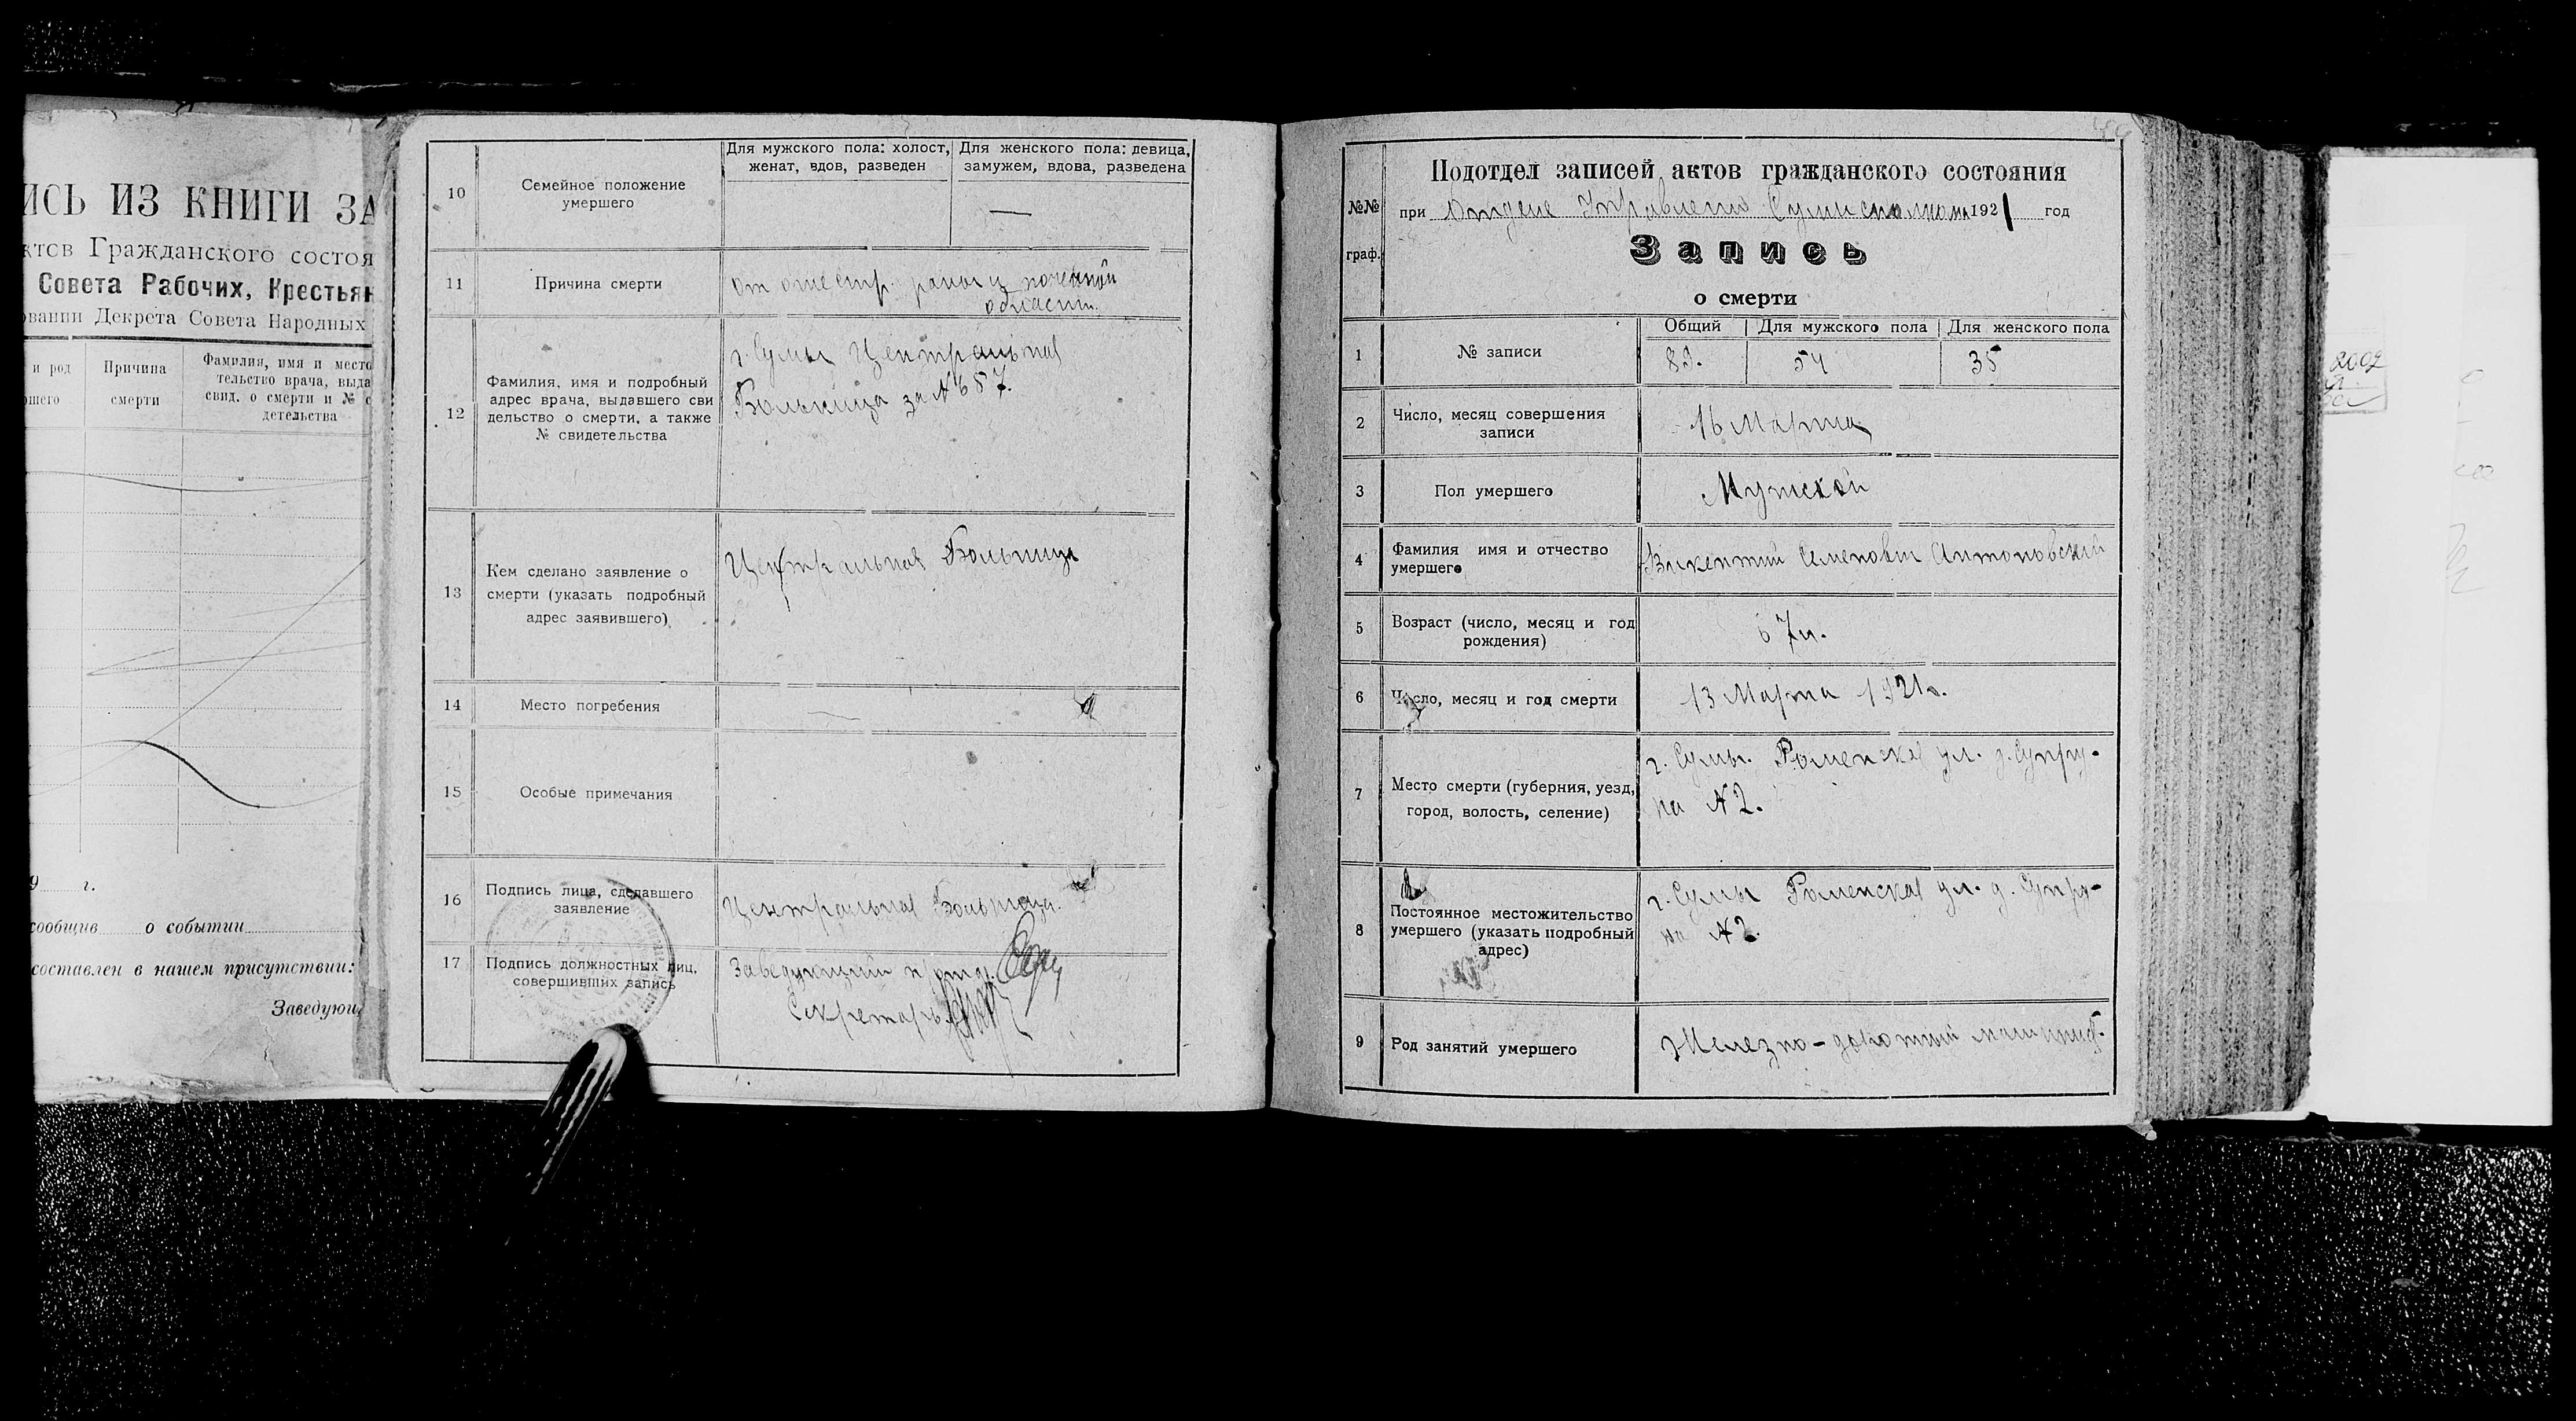 ИСЬ ИЗ КНИГИ ЗА
ктов Гражданского состоя
Совета Рабочих, Крестьян
овании Декрета Совета Народных
и род
шего
Причина
смерти
Фамилия, имя и место
тельство врача, выда
свид. о смерти и № с
детельства
9 г.
сообщив о событии
составлен в нашем присутствии:
Заведующ
10
Семейное положение
умершего
Для мужского пола: холост,
женат, вдов, разведен
Для женского пола: девица,
замужем, вдова, разведена
—
11
Причина смерти
От огнестр. раны
области.
12
Фамилия, имя и подробный
адрес врача, выдавшего сви
дельство о смерти, а также
№ свидетельства
г. Сумы Центральная
Больница за № 687.
13
Кем сделано заявление о
смерти (указать подробный
адрес заявившего)
Центральная Больница
14
Место погребения
—
15
Особые примечания
16
Подпись лица, сделавшего
заявление
Центральная Больница.
17
Подпись должностных лиц,
совершивших запись
Заведующий п/отд.
Секретарь
№№
граф.
Подотдел записей актов гражданского состояния
при Отделе Управления Сумисполкома 1921 год
Запись
о смерти
1
№ записи
Общий
Для мужского пола
Для женского пола
89.
54
35
2
Число, месяц совершения
записи
16 Марта
3
Пол умершего
Мужской
4
Фамилия имя и отчество
умершего
Викентий Семенович Антоновский
5
Возраст (число, месяц и год
рождения)
67 л.
6
Число, месяц и год смерти
13 Марта 1921 г.
7
Место смерти (губерния, уезд,
город, волость, селение)
г. Сумы. Роменская ул. д. Супру-
на № 2.
8
Постоянное местожительство
умершего (указать подробный
адрес)
г. Сумы Роменская ул. д. Супру-
на № 2.
9
Род занятий умершего
Железно-дорожный машинист.
2002